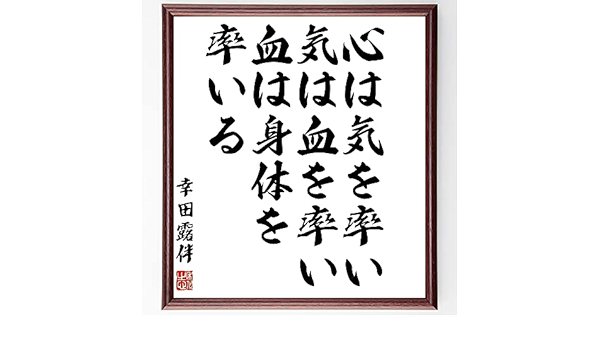 心は気を率い
気は血を率い
血は身体を
率いる
幸田露伴